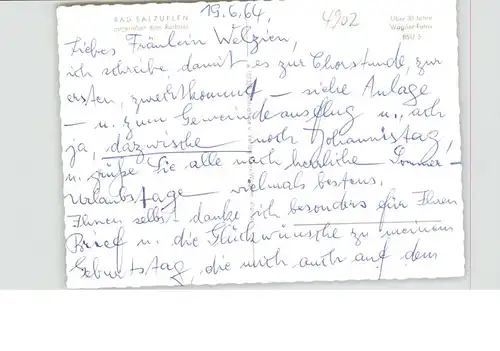 BAD SALZUFLEN
19.6.64,
4902
Über 30 Jahre
Wagner-Foto
BSU 5
Liebes Fräulein Welzien,
ich schreibe, damit es zur Chorstunde, zur
ersten, zurechtkommt – siehe Anlage
– u. zum Gemeindeausflug u., ach
ja, dazwischen noch Johannistag,
u. grüße Sie alle nach herrliche Sommer-
Urlaubstage vielmals bestens.
Ihnen selbst danke ich besonders für Ihnen
Brief u. die Glückwünsche zu meinem
Geburtstag, die mich auch auf dem